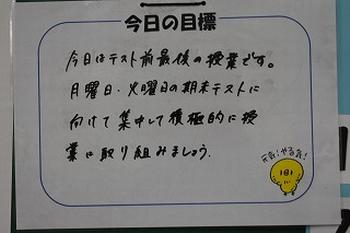 今日の目標
今日はテスト前最後の授業です。
月曜日・火曜日の期末テストに
向けて集中して積極的に授
業に取り組みましょう。
元気!やる気!